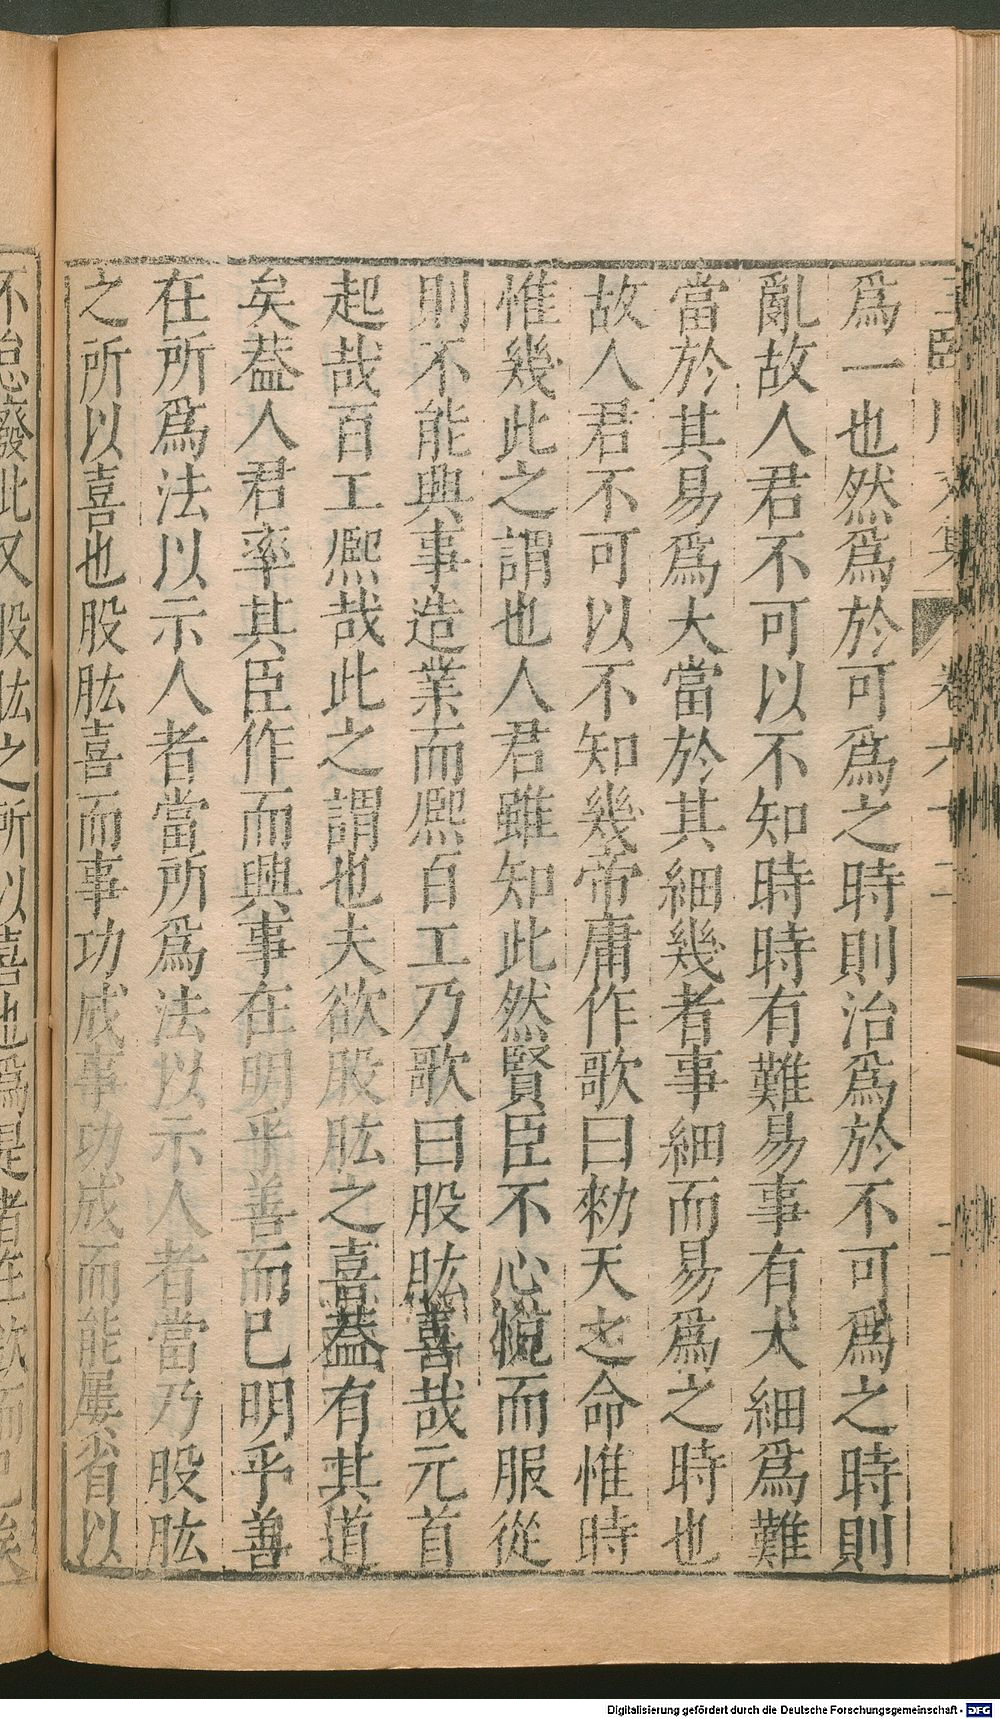 王臨川文集 卷六十二 二
爲一也然爲於可爲之時則治爲於不可爲之時則
亂故人君不可以不知時時有難易事有大細爲難
當於其易爲大當於其細幾者事細而易爲之時也
故人君不可以不知幾帝庸作歌曰勑天之命惟時
惟幾此之謂也人君雖知此然賢臣不心悅而服從
則不能興事造業而熈百工乃歌曰股肱喜哉元首
起哉百工熈哉此之謂也夫欲股肱之喜葢有其道
矣葢人君率其臣作而興事在明乎善而已明乎善
在所爲法以示人者當所爲法以示人者當乃股肱
之所以喜也股肱喜而事功成事功成而能屢省以
不怠廢此又股肱之所以喜也爲是者在欽而已矣
Digitalisierung gefördert durch die Deutsche Forschungsgemeinschaft - DFG